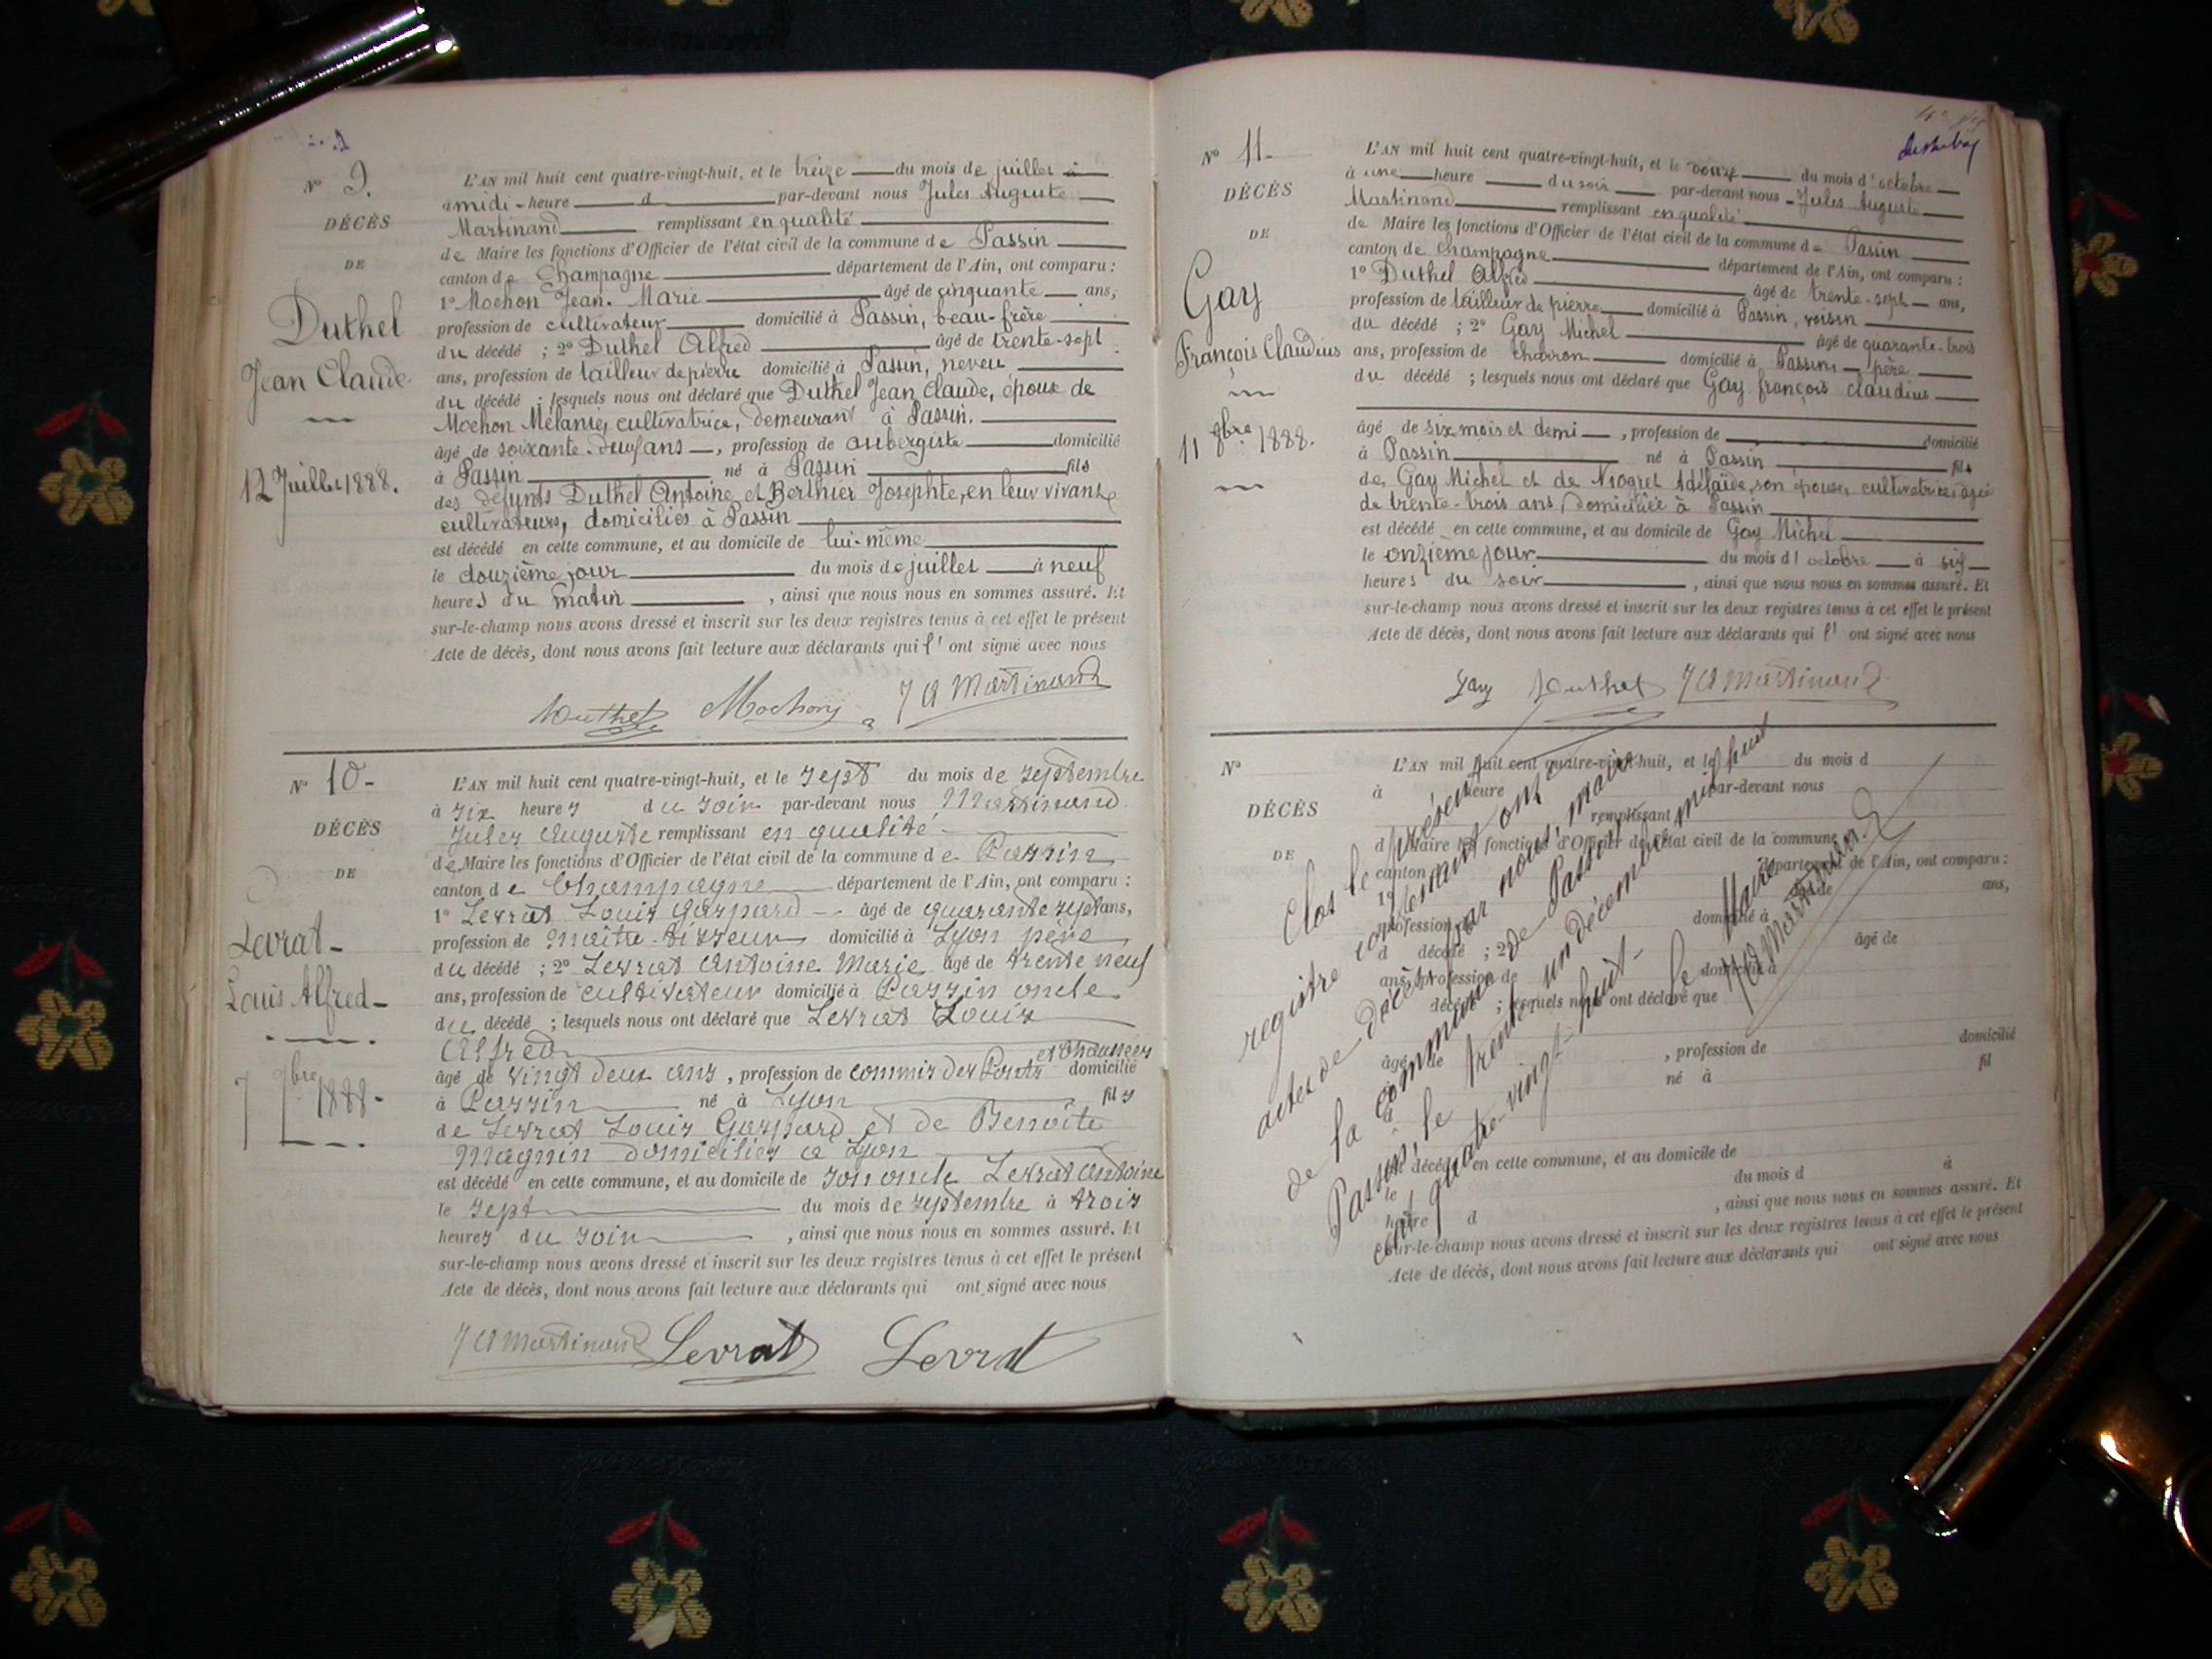 N° 9.
DÉCÈS
DE
Duthel
Jean Claude
12 Juillet 1888.
L'AN mil huit cent quatre-vingt-huit, et le treize du mois de juillet à
à midi - heure d par-devant nous Jules Auguste
Martinand remplissant en qualité
de Maire les fonctions d'Officier de l'état civil de la commune de Passin
canton de Champagne département de l'Ain, ont comparu :
1° Mochon Jean-Marie âgé de cinquante ans,
profession de cultivateur domicilié à Passin, beau-frère
du décédé ; 2° Duthel Alfred âgé de trente-sept
ans, profession de tailleur de pierre domicilié à Passin, neveu
du décédé ; lesquels nous ont déclaré que Duthel Jean Claude, époux de
Mochon Mélanie, cultivatrice, demeurant à Passin.
âgé de soixante-deux ans, profession de aubergiste domicilié
à Passin né à Passin fils
des défunts Duthel Antoine et Berthier Josephte, en leur vivant
cultivateurs, domiciliés à Passin
est décédé en cette commune, et au domicile de lui-même
le douzième jour du mois de juillet à neuf
heures du matin, ainsi que nous nous en sommes assuré. Et
sur-le-champ nous avons dressé et inscrit sur les deux registres tenus à cet effet le présent
Acte de décès, dont nous avons fait lecture aux déclarants qui l'ont signé avec nous
Duthel Mochon J A Martinand
N° 10-
DÉCÈS
DE
Levrat-
Louis Alfred-
7 7bre 1888-
L'AN mil huit cent quatre-vingt-huit, et le sept du mois de septembre
à six heures du soir par-devant nous Martinand
Jules Auguste remplissant en qualité
de Maire les fonctions d'Officier de l'état civil de la commune de Passin
canton de Champagne département de l'Ain, ont comparu :
1° Levrat Louis Gaspard - âgé de quarante sept ans,
profession de maître-tisseur domicilié à Lyon père
du décédé ; 2° Levrat Antoine Marie âgé de trente neuf
ans, profession de cultivateur domicilié à Passin oncle
du décédé ; lesquels nous ont déclaré que Levrat Louis
Alfred
âgé de vingt deux ans, profession de commis des Ponts et Chaussées domicilié
à Passin né à Lyon fils
de Levrat Louis Gaspard et de Benoîte
Magnin domiciliés à Lyon
est décédé en cette commune, et au domicile de son oncle Levrat Antoine
le sept du mois de septembre à trois
heures du soir, ainsi que nous nous en sommes assuré. Et
sur-le-champ nous avons dressé et inscrit sur les deux registres tenus à cet effet le présent
Acte de décès, dont nous avons fait lecture aux déclarants qui ont signé avec nous
J A Martinand Levrat Levrat
N° 11-
DÉCÈS
DE
Gay
François Claudius
11 8bre 1888.
L'AN mil huit cent quatre-vingt-huit, et le douze du mois d'octobre
à une heure du soir par-devant nous Jules Auguste
Martinand remplissant en qualité
de Maire les fonctions d'Officier de l'état civil de la commune de Passin
canton de Champagne département de l'Ain, ont comparu :
1° Duthel Alfred âgé de trente-sept ans,
profession de tailleur de pierre domicilié à Passin, voisin
du décédé ; 2° Gay Michel âgé de quarante-trois
ans, profession de charron domicilié à Passin père
du décédé ; lesquels nous ont déclaré que Gay françois claudius
âgé de six mois et demi, profession de domicilié
à Passin né à Passin fils
de Gay Michel et de Niogret Adélaïde, son épouse, cultivatrice, âgée
de trente-trois ans, domiciliée à Passin
est décédé en cette commune, et au domicile de Gay Michel
le onzième jour du mois d'octobre à six
heures du soir, ainsi que nous nous en sommes assuré. Et
sur-le-champ nous avons dressé et inscrit sur les deux registres tenus à cet effet le présent
Acte de décès, dont nous avons fait lecture aux déclarants qui l'ont signé avec nous
Gay Duthel J A Martinand
N°
DÉCÈS
DE
L'AN mil huit cent quatre-vingt-huit, et le du mois d
à heure par-devant nous
remplissant
d Maire les fonctions d'Officier de l'état civil de la commune
canton département de l'Ain, ont comparu :
1° âgé de ans,
profession domicilié à
d décédé ; 2° âgé de
ans, profession de domicilié à
décédé ; lesquels nous ont déclaré que
âgé de , profession de domicilié
à né à fil
de
est décédé en cette commune, et au domicile de
le du mois d à
heure d , ainsi que nous nous en sommes assuré. Et
sur-le-champ nous avons dressé et inscrit sur les deux registres tenus à cet effet le présent
Acte de décès, dont nous avons fait lecture aux déclarants qui ont signé avec nous
Clos le présent
registre contenant onze
actes de décès par nous, maire
de la commune de Passin
Passin, le trente un décembre mil huit
cent quatre-vingt-huit-
Le Maire
J A Martinand